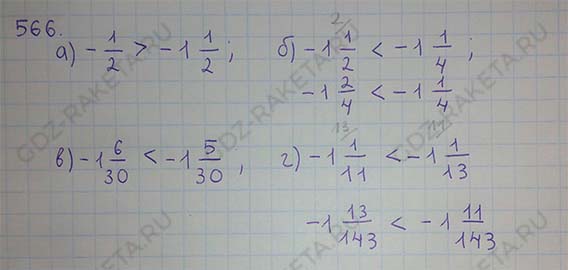 566.
а) -1/2 > -1 1/2;
б) -1 1/2 < -1 1/4;
-1 2/4 < -1 1/4
в) -1 6/30 < -1 5/30,
г) -1 1/11 < -1 1/13
-1 13/143 < -1 11/143
GDZ-RAKETA.RU